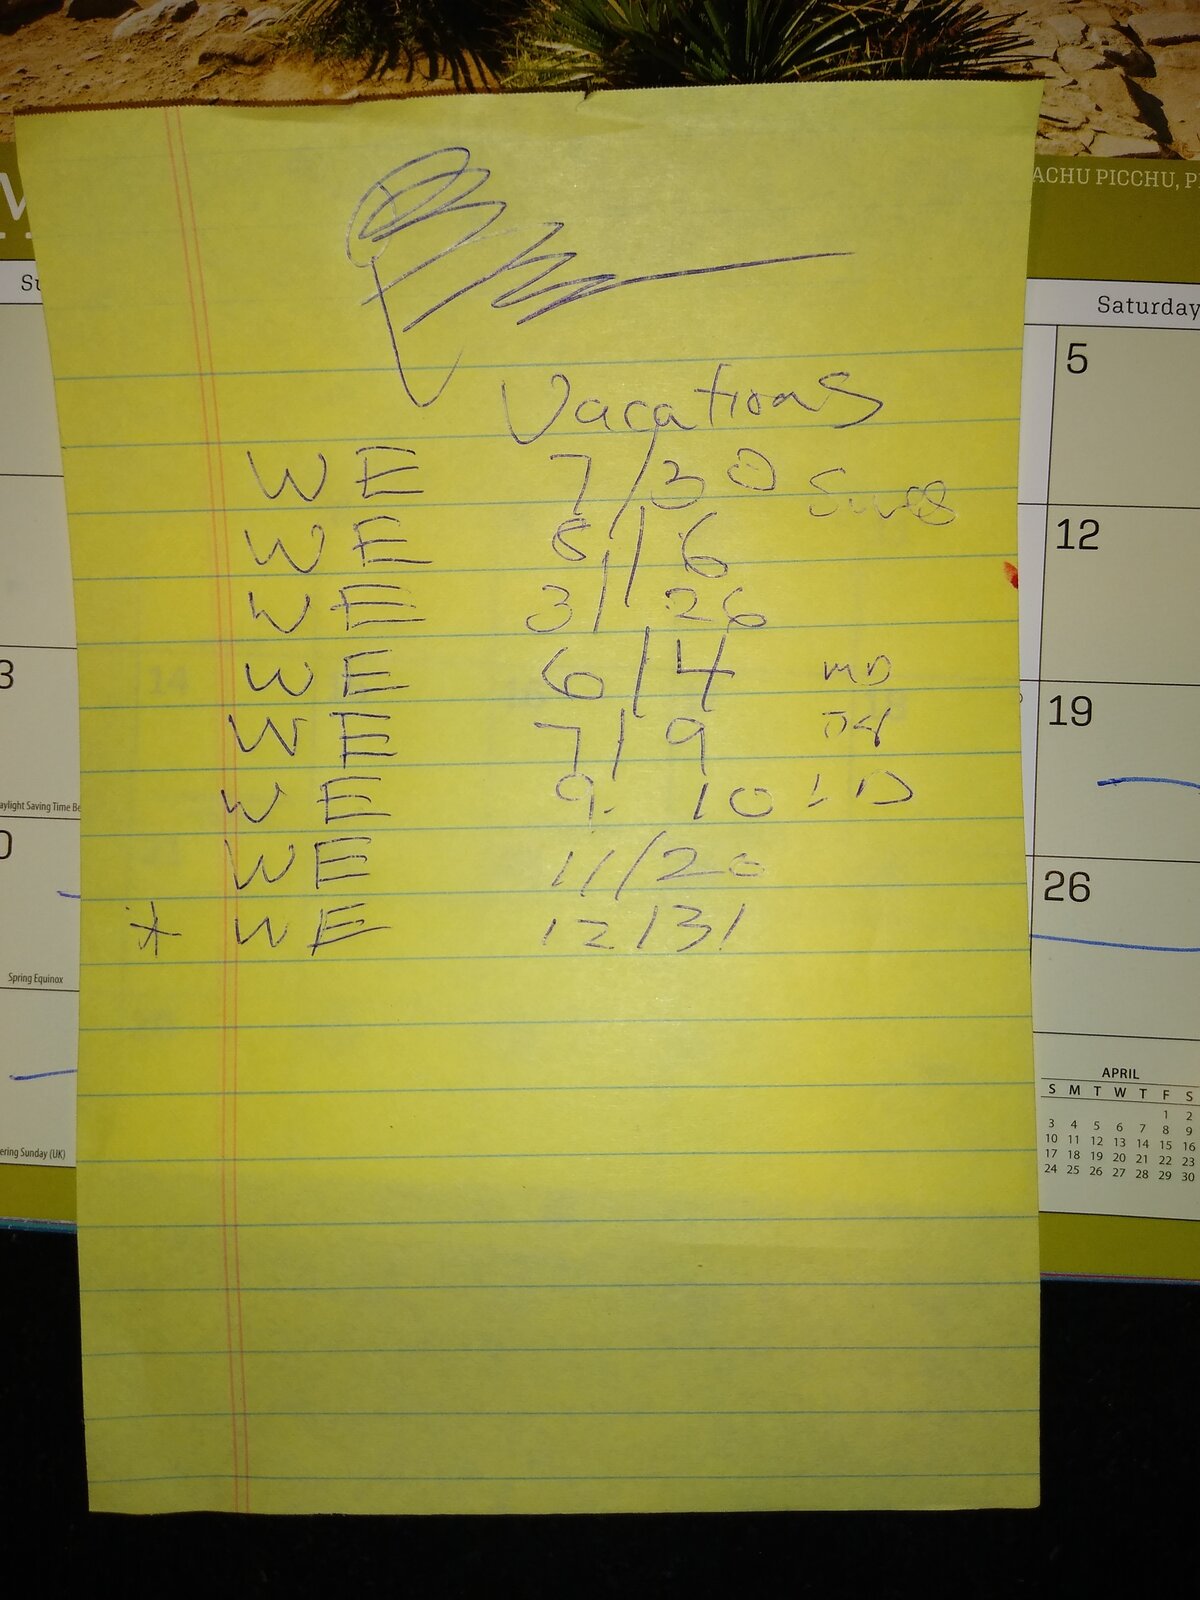 ACHU PICCHU, P
Su
Saturday
5
Vacations
WE 7/30
WE 8/6
12
WE 3/26
WE 6/4 MD
3
19
WE 7/9 J4
aylight Saving Time Be
WE 9. 10 LD
0
WE 11/20
26
* WE 12/31
Spring Equinox
APRIL
S M T W T F S
1 2
3 4 5 6 7 8 9
10 11 12 13 14 15 16
17 18 19 20 21 22 23
24 25 26 27 28 29 30
ering Sunday (UK)